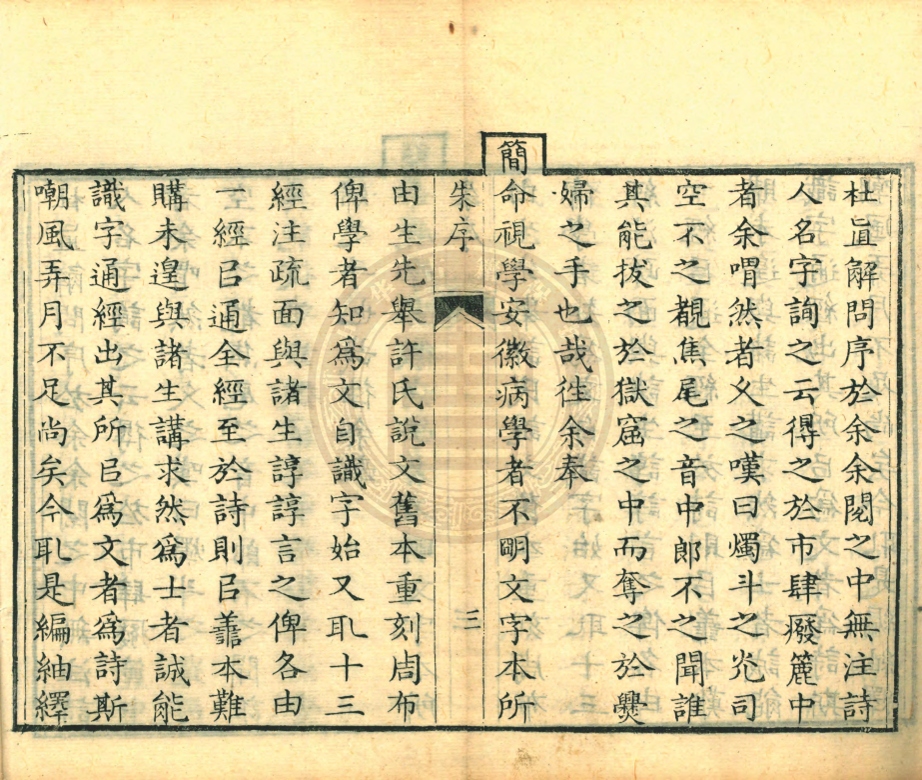 杜眞解問序於余余閱之中無注詩
人名字詢之云得之於市肆廢簏中
者余喟然者久之嘆曰燭斗之光司
空不之覩焦尾之音中郎不之聞誰
其能拔之於獄窟之中而奪之於爨
婦之手也哉徃余奉
簡命視學安徽病學者不明文字本所
朱序
三
由生先舉許氏說文舊本重刻周布
俾學者知爲文自識字始又取十三
經注疏面與諸生諄諄言之俾各由
一經㠯通全經至於詩則㠯譱本難
購未遑與諸生講求然爲士者誠能
識字通經出其所㠯爲文者爲詩斯
嘲風弄月不足尚矣今取是編紬繹